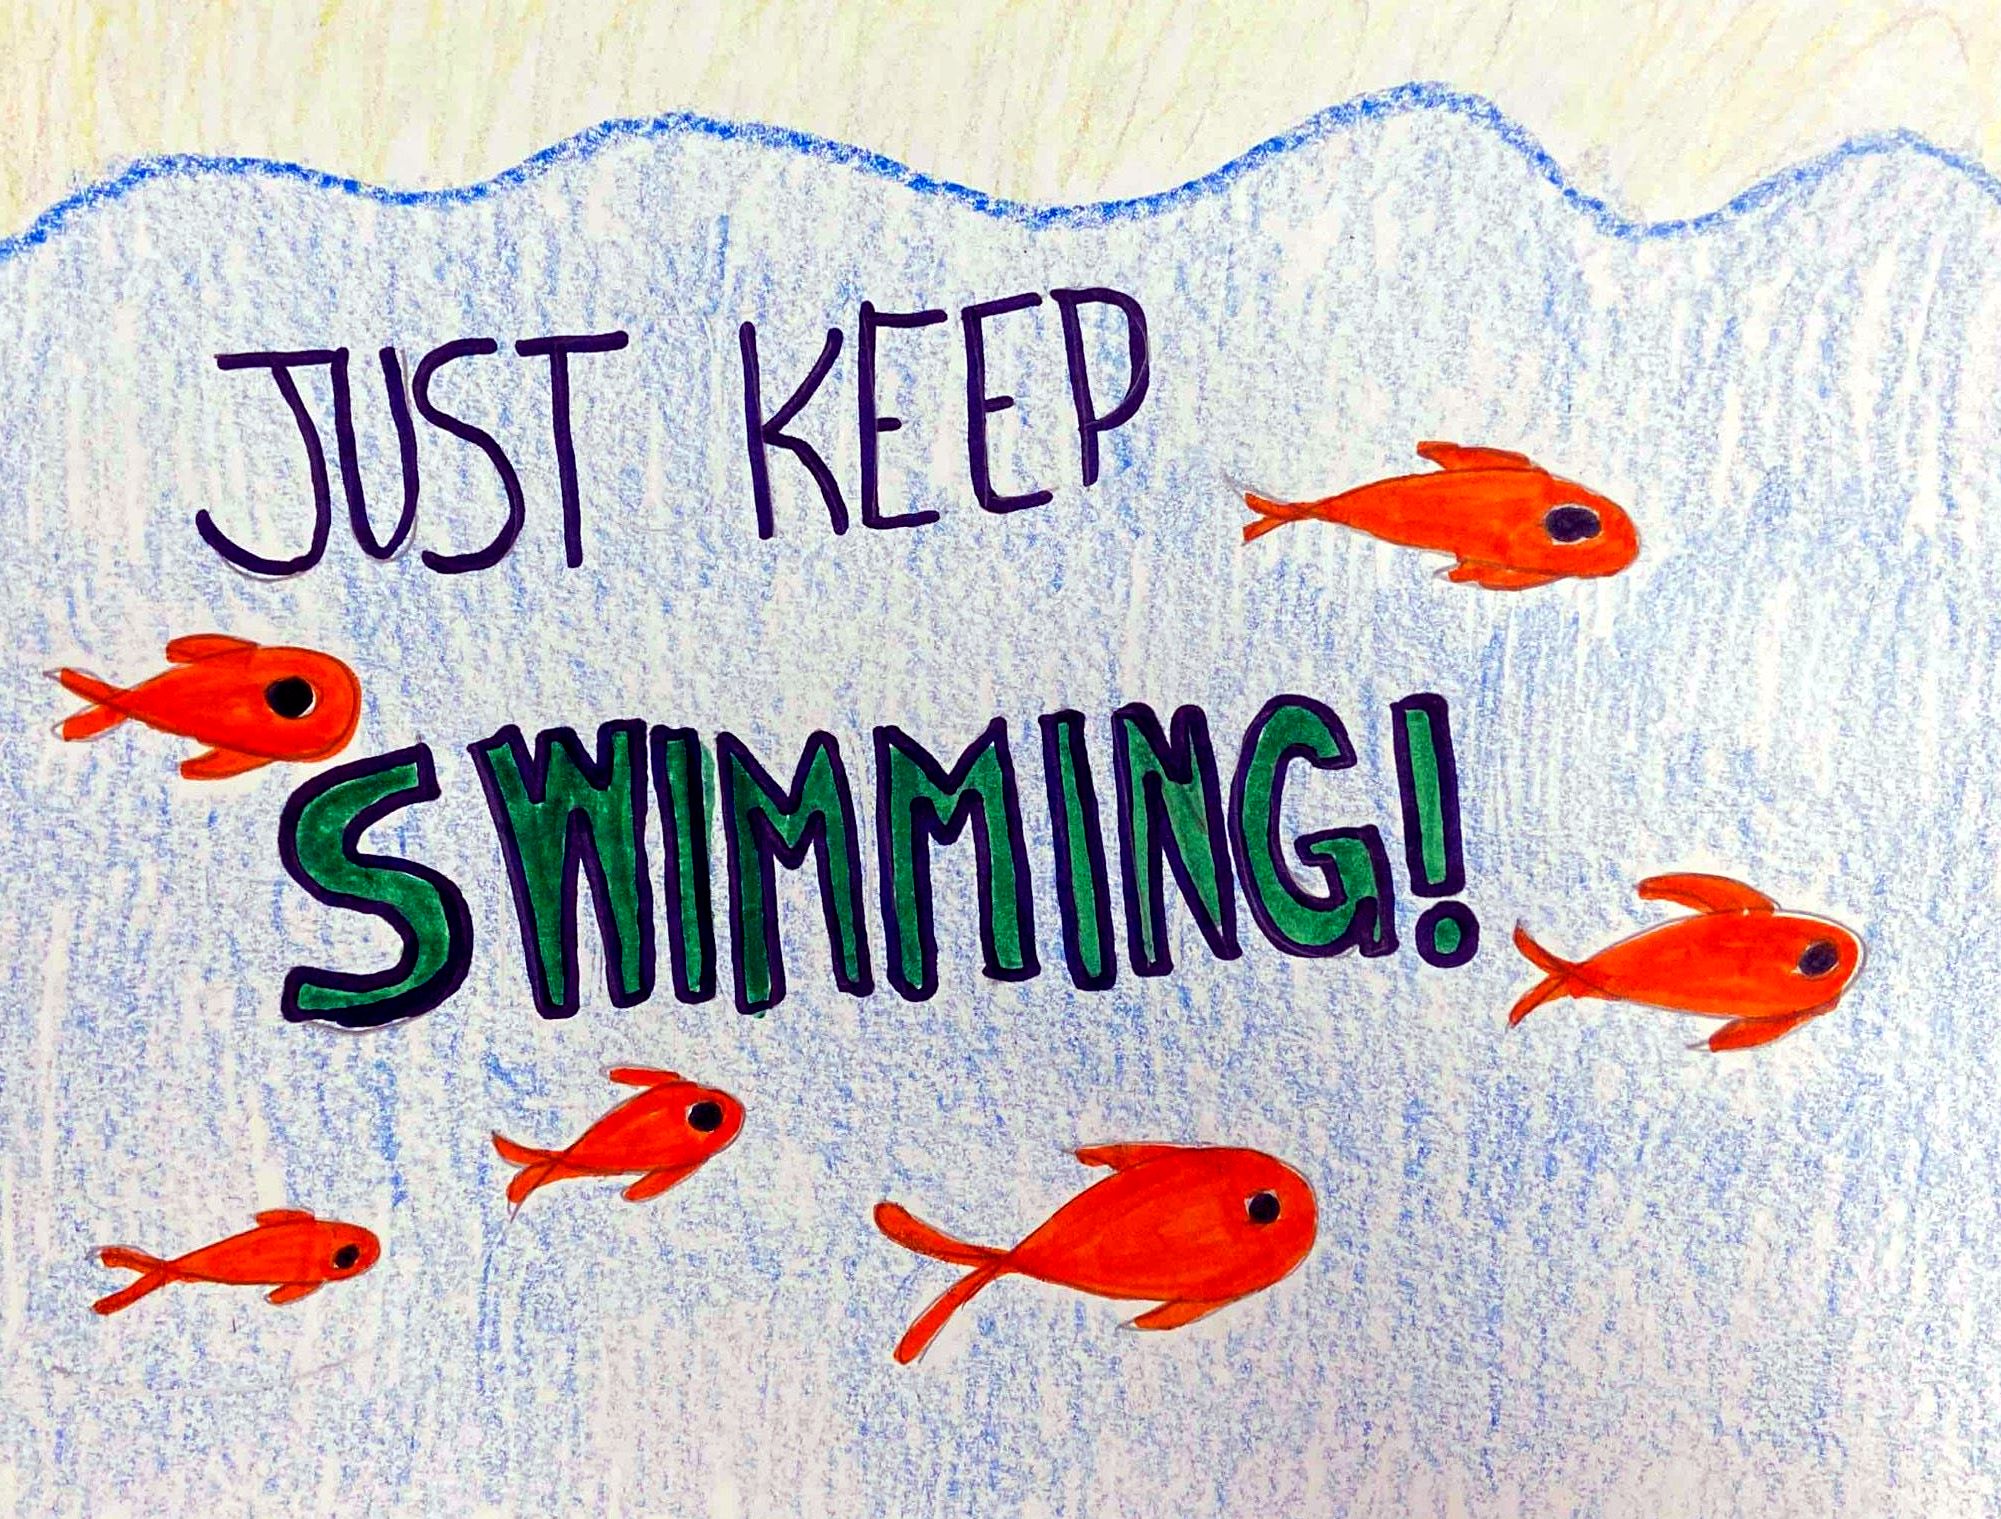 JUST KEEP
SWIMMING!